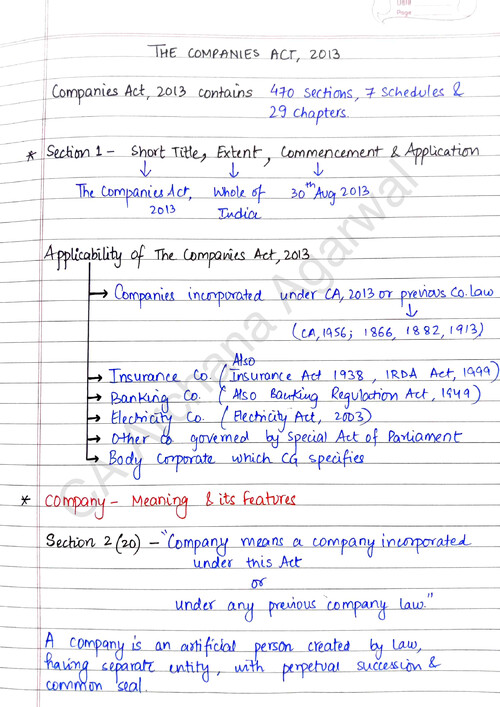 Page
THE COMPANIES ACT, 2013
Companies Act, 2013 contains 470 Sections, 7 Schedules &
29 chapters.
* Section 1 - Short Title, Extent, Commencement & Application
The Companies Act, Whole of 30th Aug 2013
2013 India
Applicability of The Companies Act, 2013
Companies incorporated under CA, 2013 or previous Co. law
(CA, 1956; 1866, 1882, 1913)
Also
Insurance Co. (Insurance Act 1938, IRDA Act, 1999)
Banking Co. (Also Banking Regulation Act, 1949)
Electricity Co. (Electricity Act, 2003)
Other Co governed by Special Act of Parliament
Body Corporate which CG specifies
* Company - Meaning & its features
Section 2(20) - "Company means a company incorporated
under this Act
or
under any previous company law."
A company is an artificial person created by law,
having separate entity, with perpetual succession &
common seal.
CA Archana Agarwal